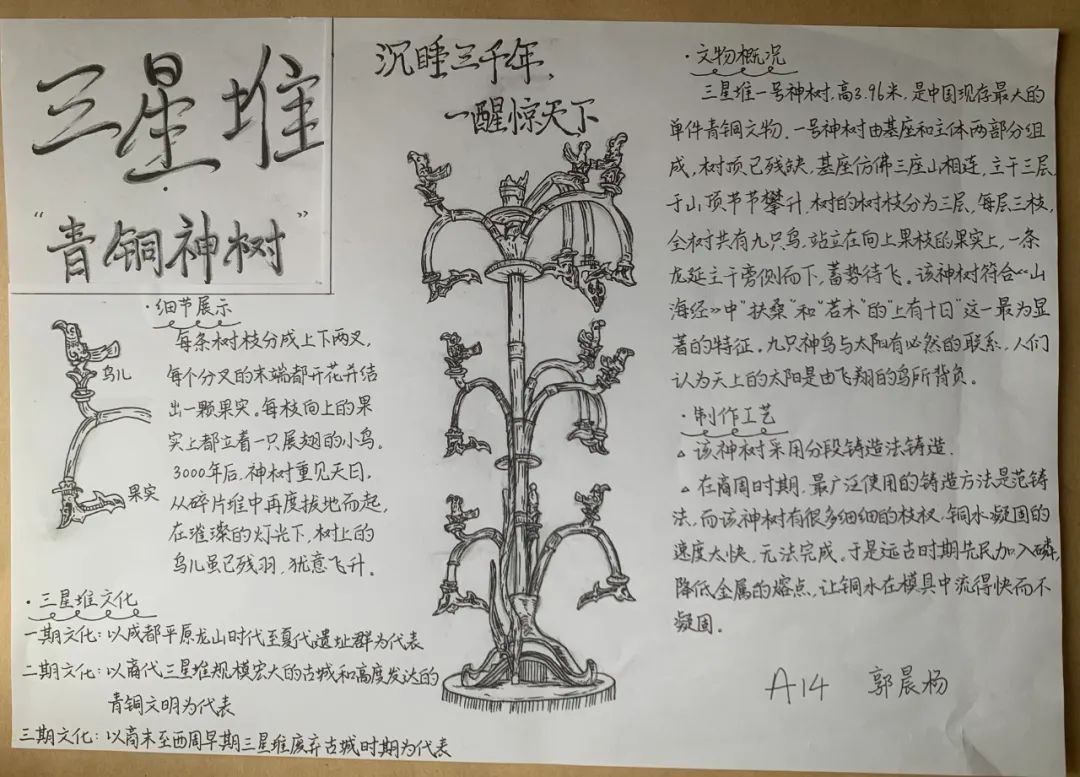 三星堆
“青铜神树”
沉睡三千年,
一醒惊天下
·细节展示
每条树枝分成上下两叉,
每个分叉的末端都开花并结
出一颗果实。每枝向上的果
实上都立着一只展翅的小鸟。
3000年后,神树重见天日,
从碎片堆中再度拔地而起,
在璀璨的灯光下,树上的
鸟儿虽已残羽,犹意飞升。
鸟儿
果实
·三星堆文化
一期文化:以成都平原龙山时代至夏代遗址群为代表
二期文化:以商代三星堆规模宏大的古城和高度发达的
青铜文明为代表
三期文化:以商末至西周早期三星堆废弃古城时期为代表
·文物概况
三星堆一号神树,高3.96米,是中国现存最大的
单件青铜文物,一号神树由基座和主体两部分组
成,树顶已残缺,基座仿佛三座山相连,主干三层,
于山顶节节攀升,树的树枝分为三层,每层三枝,
全树共有九只鸟,站立在向上果枝的果实上,一条
龙延主干旁侧而下,蓄势待飞。该神树符合《山
海经》中“扶桑”和“若木”的“上有十日”这一最为显
著的特征。九只神鸟与太阳有必然的联系,人们
认为天上的太阳是由飞翔的鸟所背负。
·制作工艺
△ 该神树采用分段铸造法铸造.
△ 在商周时期,最广泛使用的铸造方法是范铸
法,而该神树有很多细细的枝杈,铜水凝固的
速度太快,无法完成。于是远古时期先民加入磷,
降低金属的熔点,让铜水在模具中流得快而不
凝固。
A14 郭晨杨